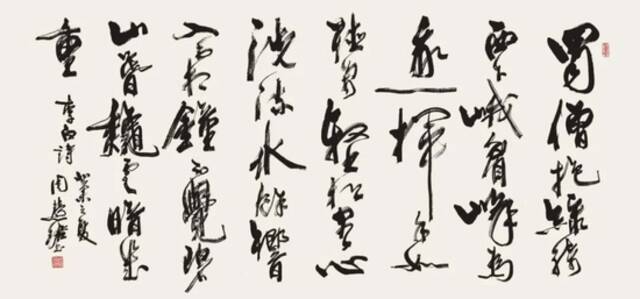 蜀僧抱綠綺
西下峨眉峰為
我一揮手如
聽萬壑松客心
洗流水餘響
入霜鐘不覺碧
山暮龝雲暗幾
重
李白詩
癸未之夏
周慧珺